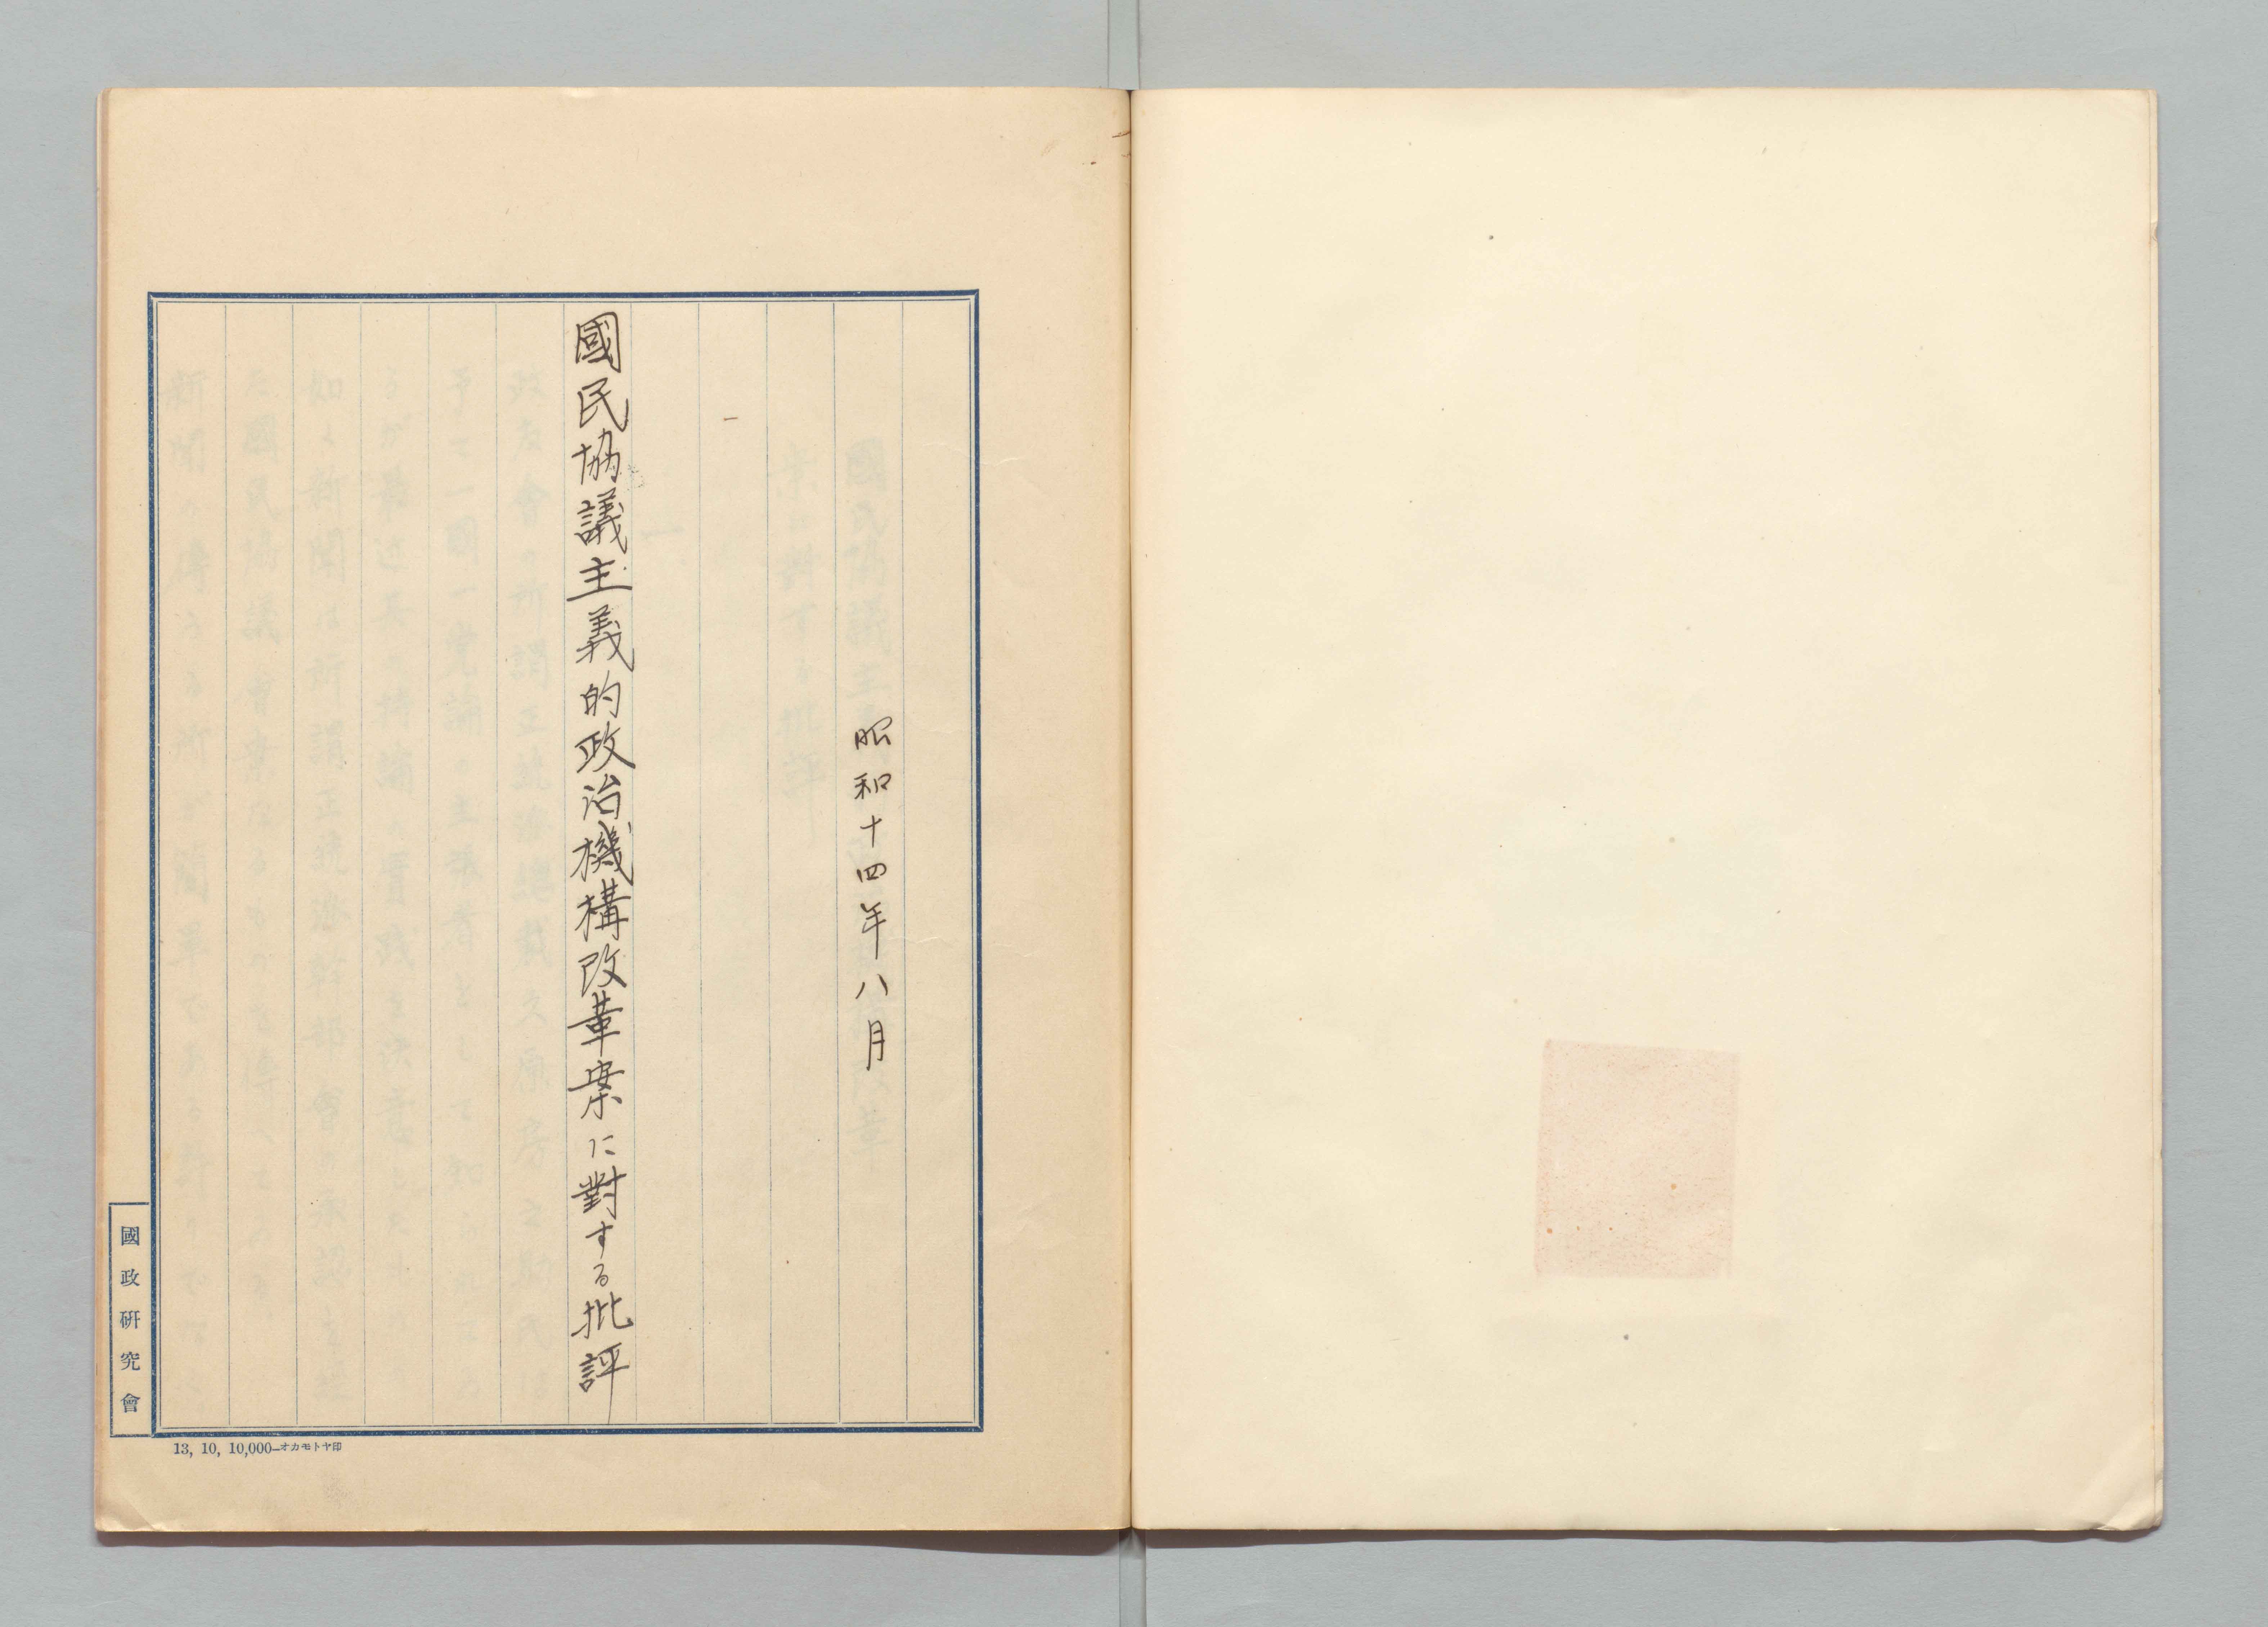 昭和十四年八月
國民協議主義的政治機構改革案に對する批評
國政研究會
13, 10, 10,000—オカモトヤ印